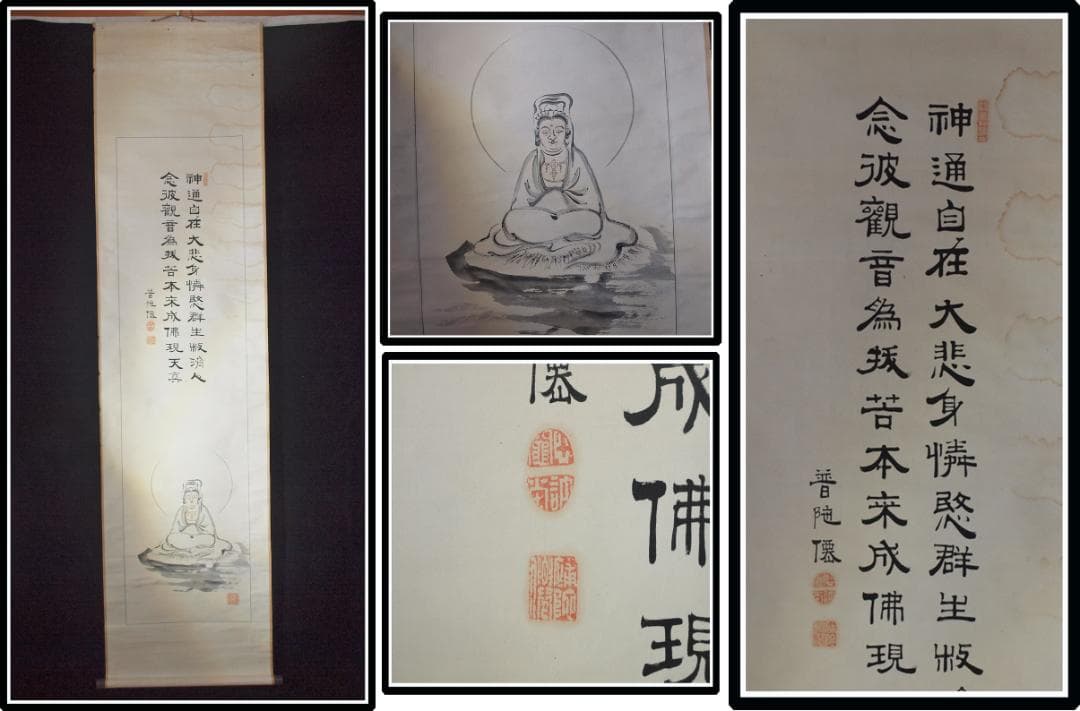 神通自在大悲身憐愍群生救人
念彼觀音為拔苦本来成佛現天真
普陀僊
成佛現
僊
神通自在大悲身憐愍群生救
念彼觀音為拔苦本来成佛現
普陀僊